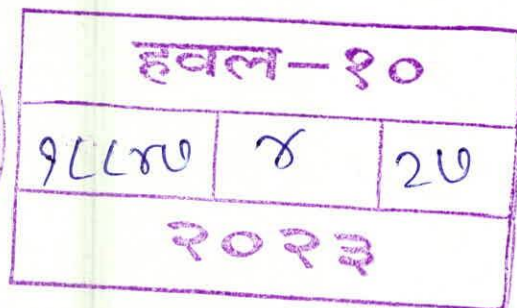 हवल-१०
१८८४७ ४ २७
२०२३